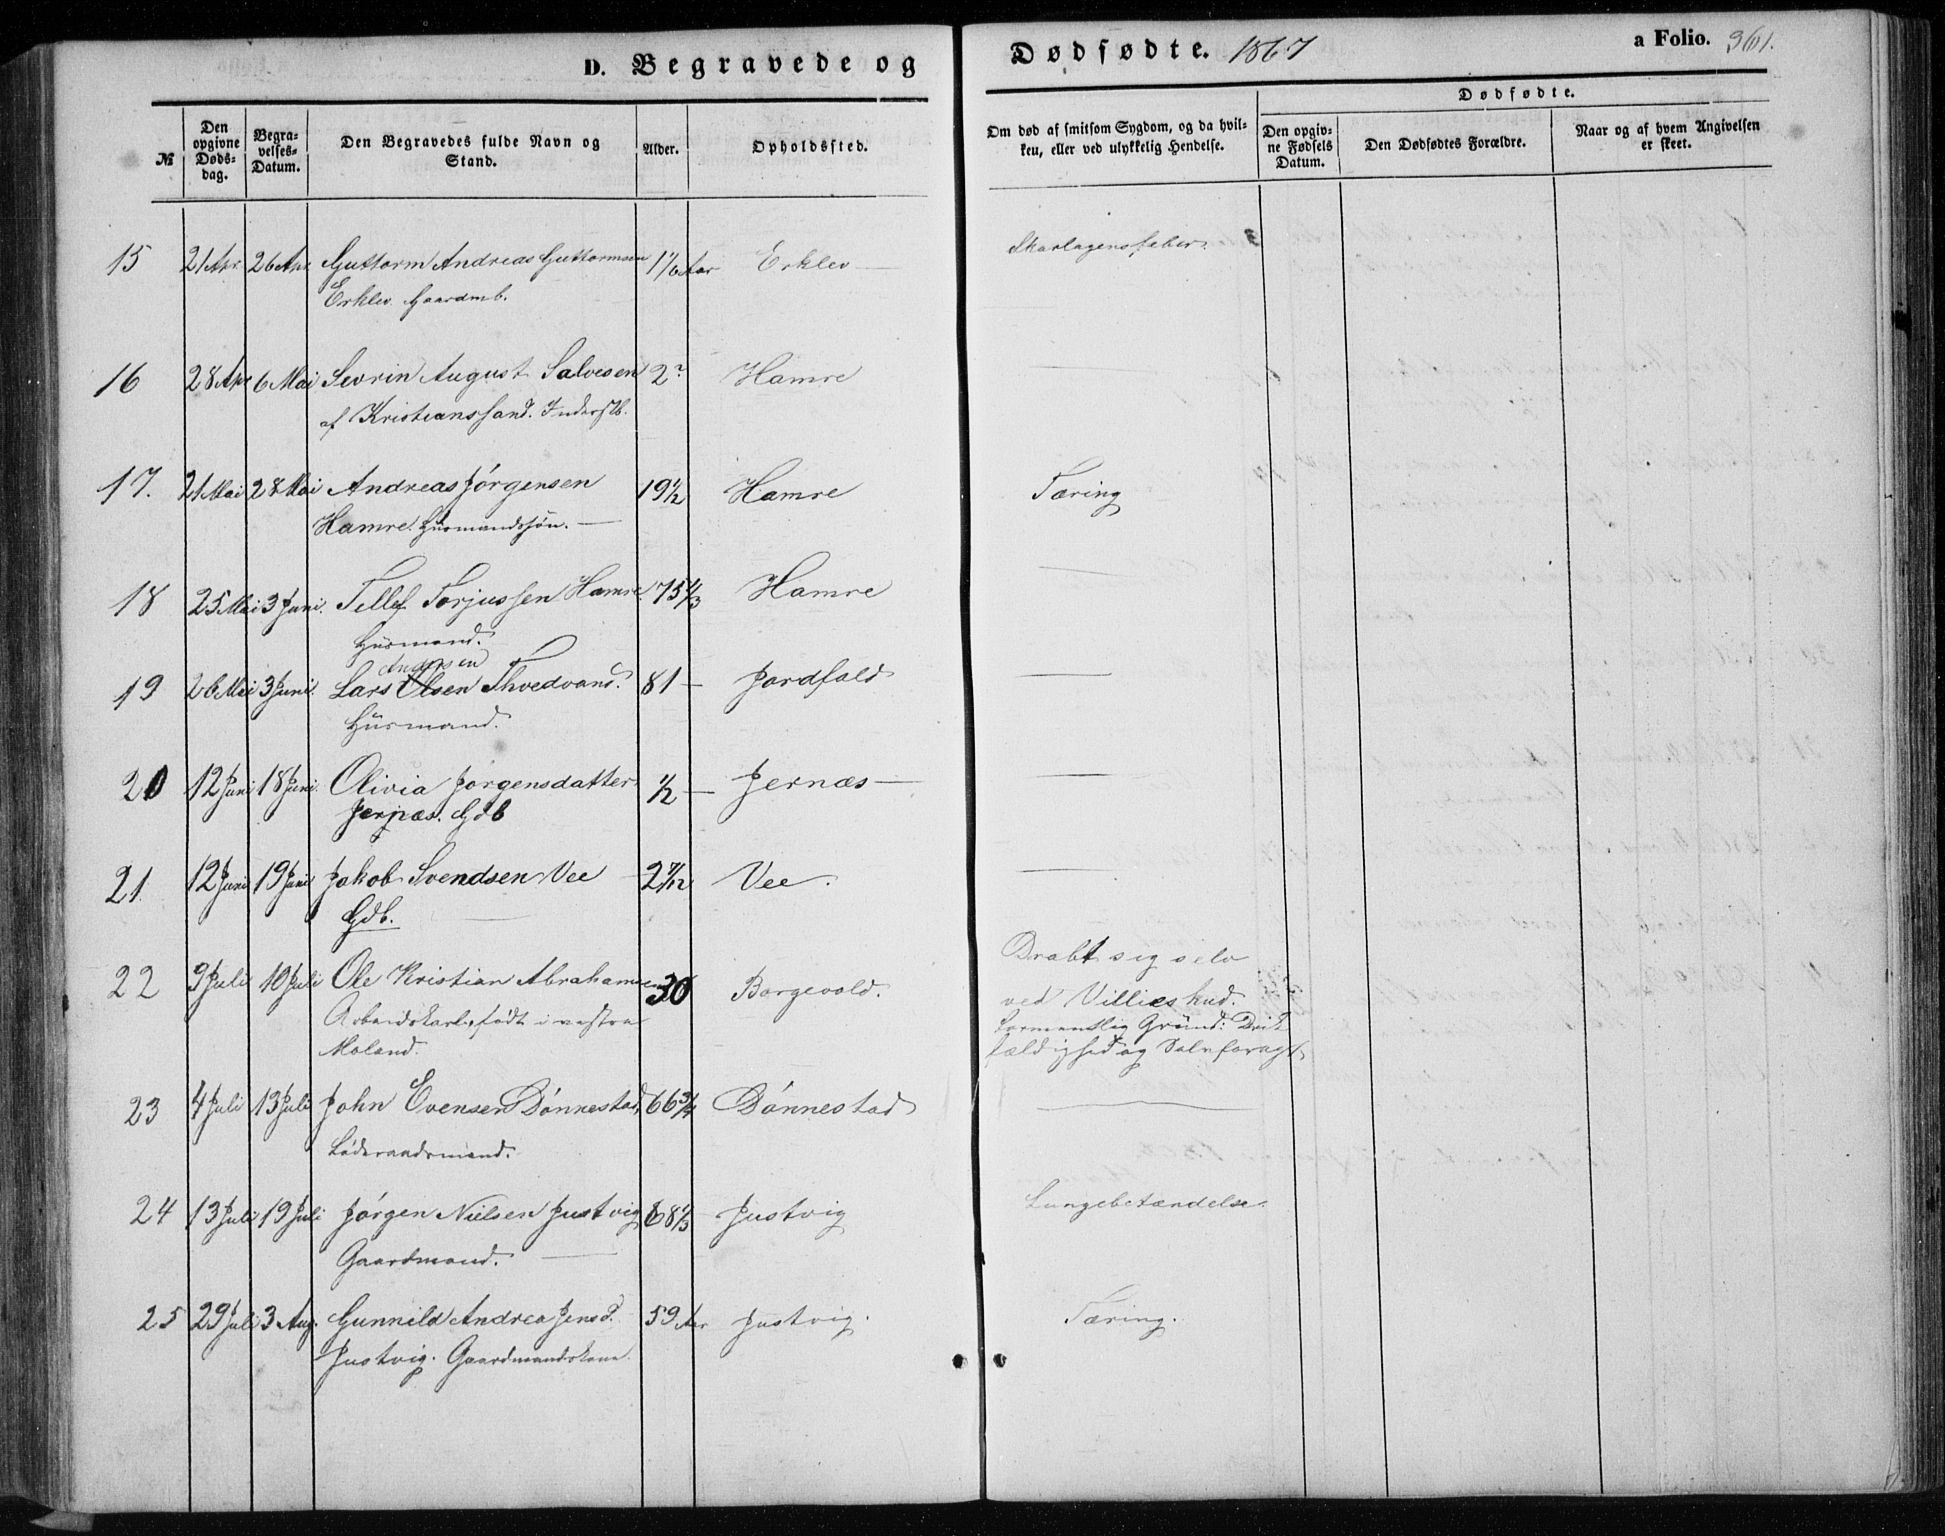 D. Begravede og Dødsfødte. 1867 a Folio. 361.
№ | Den opgivne Døds-dag. | Begra-velses-Datum. | Den Begravedes fulde Navn og Stand. | Alder. | Opholdssted. | Om død af smitsom Sygdom, og da hvil-ken, eller ved ulykkelig Hendelse. | Dødfødte. | Den opgiv-ne Fødsels Datum. | Den Dødfødtes Forældre. | Naar og af hvem Angivelsen er skeet.
15 21 Apr. 26 Apr. Guttorm Andreas Guttormsen 1 1/6 Aar Erklev — Skarlagensfeber.
Erklev. Gaardmb.
16 28 Apr 6 Mai Sevrin August Salvesen 2 Hamre —
af Kristianssand. Inderstb.
17. 21 Mai 28 Mai Andreas Jórgensen 19 1/2 Hamre Tæring
Hamre. Husmandssón. —
18 25 Mai 3 Juni. Tellef Torjussen Hamre. 75 1/3 Hamre —
Husmand.
Andersen
19 26 Mai 3 Juni. Lars Olsen Thvedvand. 81 — Jordfald —
Husmand.
20 12 Juni 18 Juni. Olivia Jørgensdatter 1/2 — Jernæs — —
Jernæs. Gdb
21. 12 Juni 19 Juni Jakob Svendsen Vee 2 7/12 Vee. —
Gdb.
22 9 Juli 10 Juli Ole Kristian Abrahamsen 30 Borgevold. Dræbt sig selv
Arbeidskarl, født i vestra ved Vilkieskud.
Moland. Grund: Drik
fældighed og Selvforagt
23 4 Juli 13 Juli John Evensen Dónnestad, 66 3/4 Dónnestad —
Lóderaadsmand.
24 13 Juli 19 Juli Jórgen Nielsen Justvig 68 1/3 Justvig Lungebetændelse.
Gaardmand. —
25 29 Juli 3 Aug. Gunnild Andrea Jensd. 59 Aar Justvig. Tæring.
Justvig. Gaardmandskone.